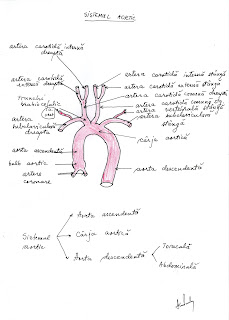 SISTEMUL AORTIC
artera carotidă internă
dreaptă
artera carotidă
externă dreaptă
Trunchi
brahiocefalic
artera
subclaviculară
dreaptă
aorta ascendentă
bulb aortic
artere
coronare
artera carotidă internă stângă
artera carotidă externă stângă
artera carotidă comună dreaptă
artera carotidă comună stg.
artera vertebrală stângă
artera subclaviculară
stângă
cârja aortică
aorta descendentă
Sistemul
aortic
Aorta ascendentă
Cârja aortică
Aorta descendentă
Toracală
Abdominală